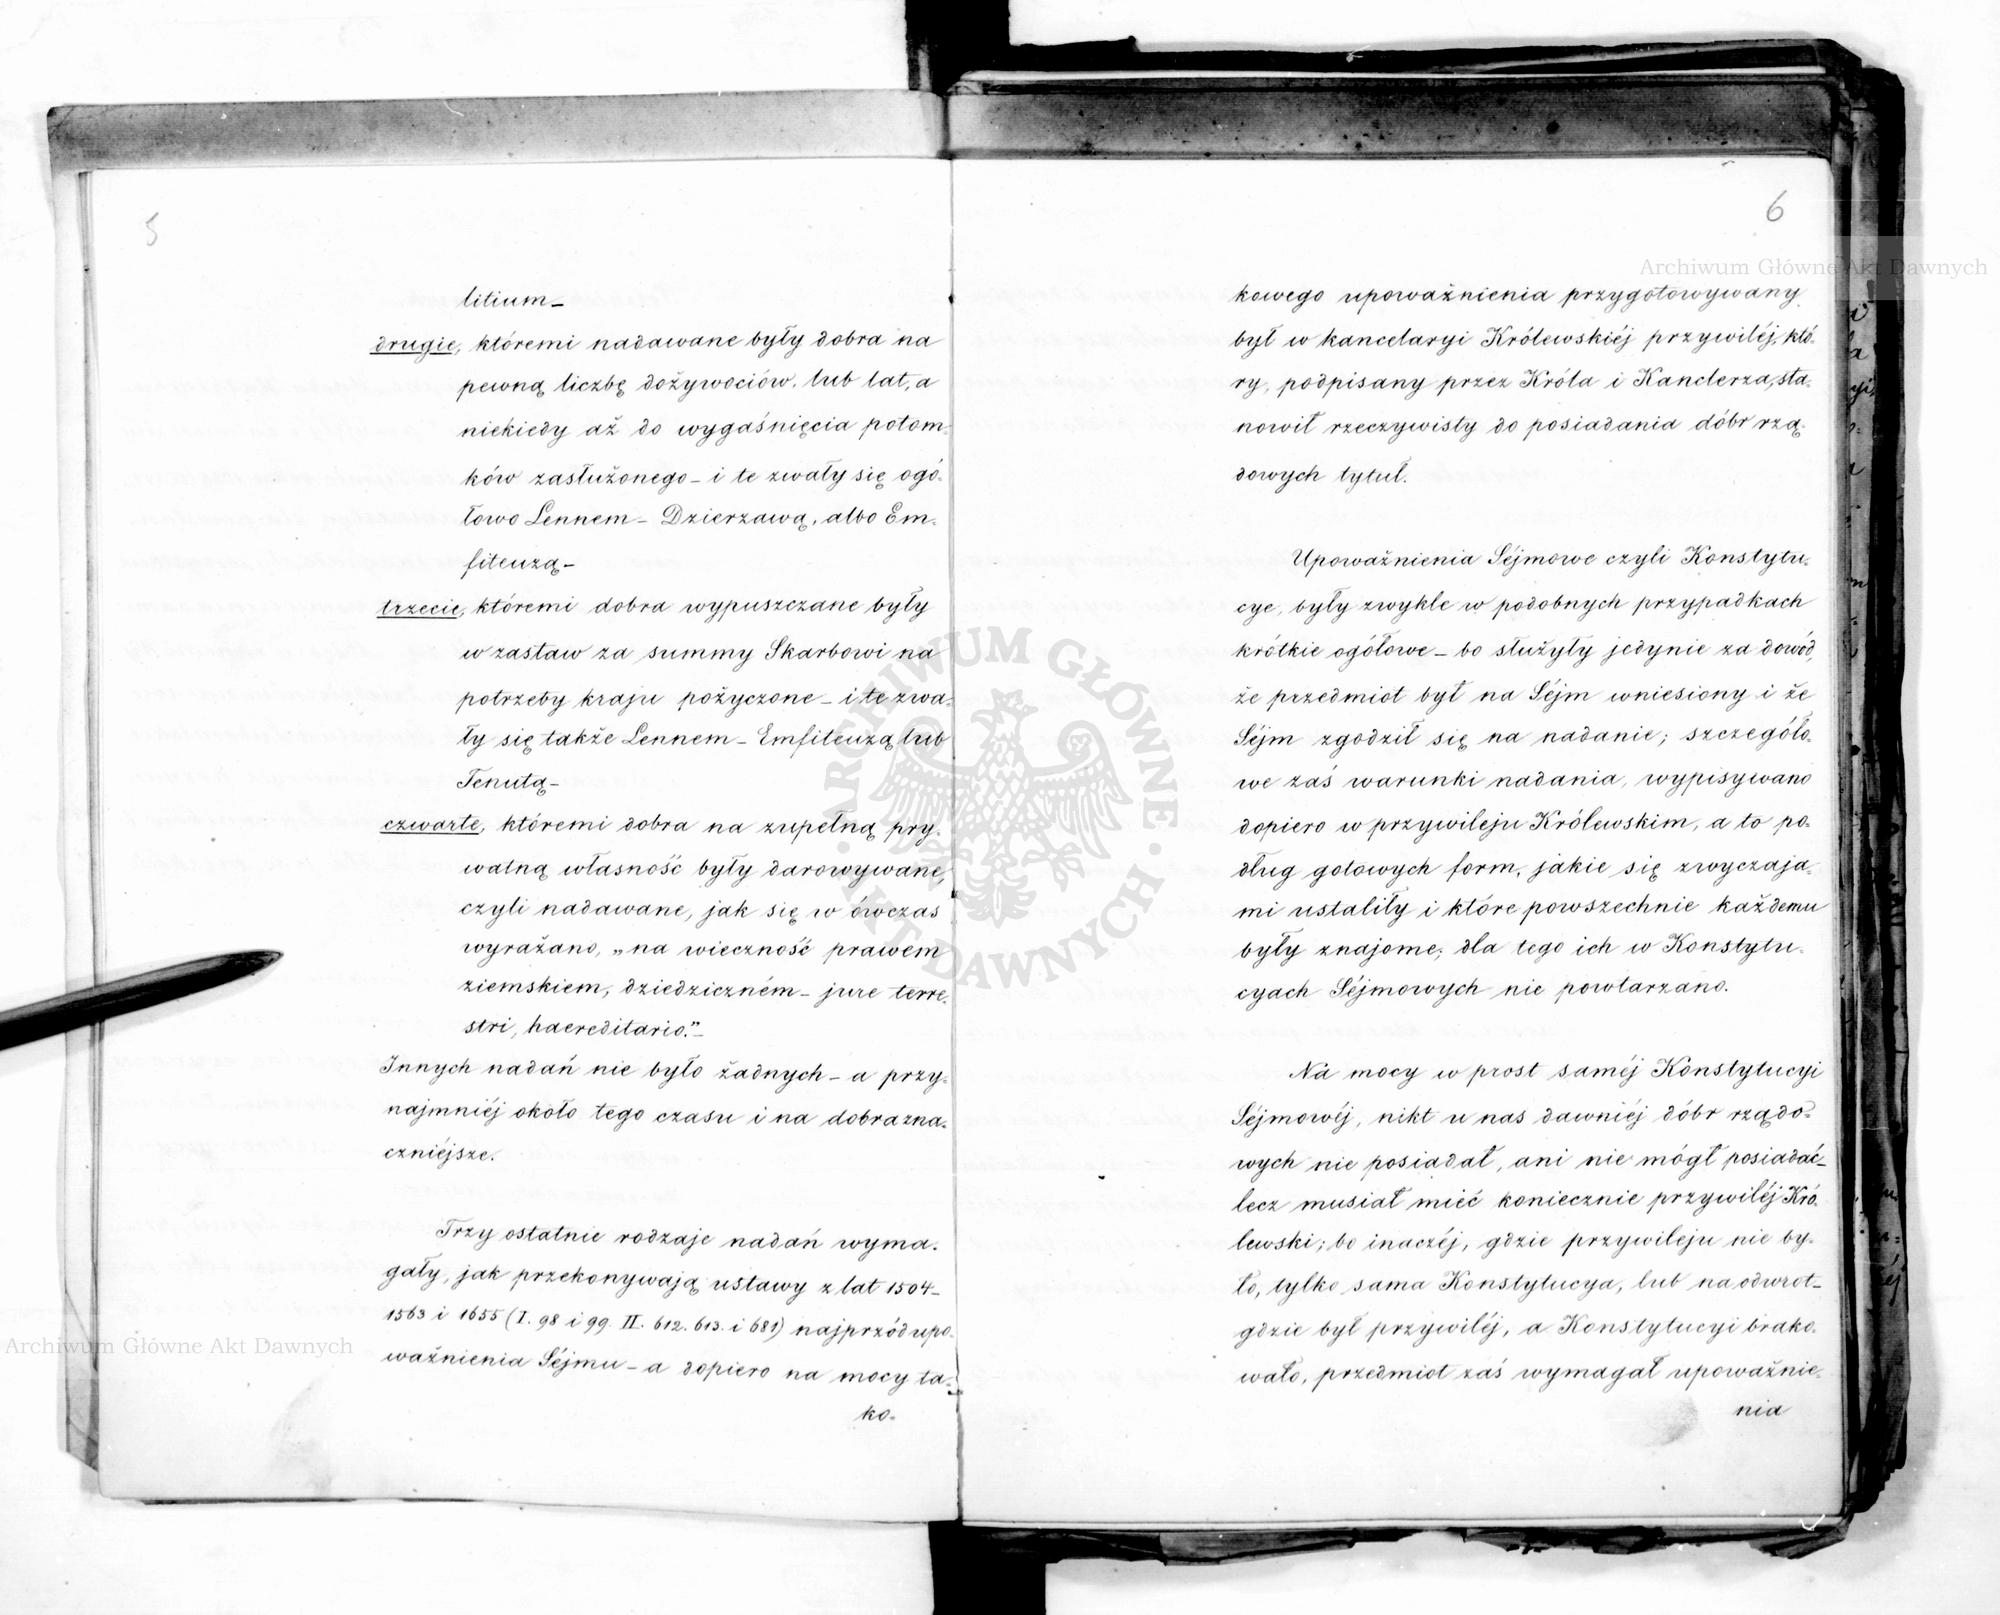 5
litium_
drugie, któremi nadawane były dobra na
pewną liczbę dożywociów, lub lat, a
niekiedy aż do wygaśnięcia potom-
ków zasłużonego_ i te zwały się ogó-
łowo Lennem_ Dzierzawą, albo Em-
fiteuzą_
trzecie, któremi dobra wypuszczane były
w zastaw za summy Skarbowi na
potrzeby kraju pożyczone_ i te zwa-
ły się także Lennem_ Emfiteuzą lub
Tenutą_
czwarte, któremi dobra na zupełną pry-
watną własność były darowywane,
czyli nadawane, jak się w ówczas
wyrażano, „na wieczność prawem
ziemskiem, dziedziczném_ jure terre-
stri, haereditario."_
Innych nadań nie było żadnych_ a przy-
najmniéj około tego czasu i na dobra zna-
czniéjsze.
Trzy ostatnie rodzaje nadań wyma-
gały, jak przekonywają ustawy z lat 1504_
1563 i 1655 (I. 98 i 99. II. 612. 613. i 681) najprzód upo-
ważnienia Séjmu_ a dopiero na mocy ta-
ko-
6
kowego upoważnienia przygotowywany
był w kancelaryi Królewskiéj przywiléj, któ-
ry, podpisany przez Króla i Kanclerza, sta-
nowił rzeczywisty do posiadania dóbr rzą-
dowych tytuł.
Upoważnienia Séjmowe czyli Konstytu-
cye, były zwykle w podobnych przypadkach
krótkie ogółowe_ bo służyły jedynie za dowód,
że przedmiot był na Séjm wniesiony i że
Séjm zgodził się na nadanie; szczegóło-
we zaś warunki nadania, wypisywano
dopiero w przywileju Królewskim, a to po-
dług gotowych form, jakie się zwyczaja-
mi ustaliły i które powszechnie każdemu
były znajome; dla tego ich w Konstytu-
cyach Séjmowych nie powtarzano.
Na mocy w prost saméj Konstytucyi
Séjmowéj, nikt u nas dawniéj dóbr rządo-
wych nie posiadał, ani nie mógł posiadać_
lecz musiał mieć koniecznie przywiléj Kró-
lewski; bo inaczéj, gdzie przywileju nie by-
ło, tylko sama Konstytucya, lub na odwrot_
gdzie był przywiléj, a Konstytucyi brako-
wało, przedmiot zaś wymagał upoważnie-
nia
ARCHIWUM GŁÓWNE AKT DAWNYCH
Archiwum Główne Akt Dawnych
Archiwum Główne Akt Dawnych